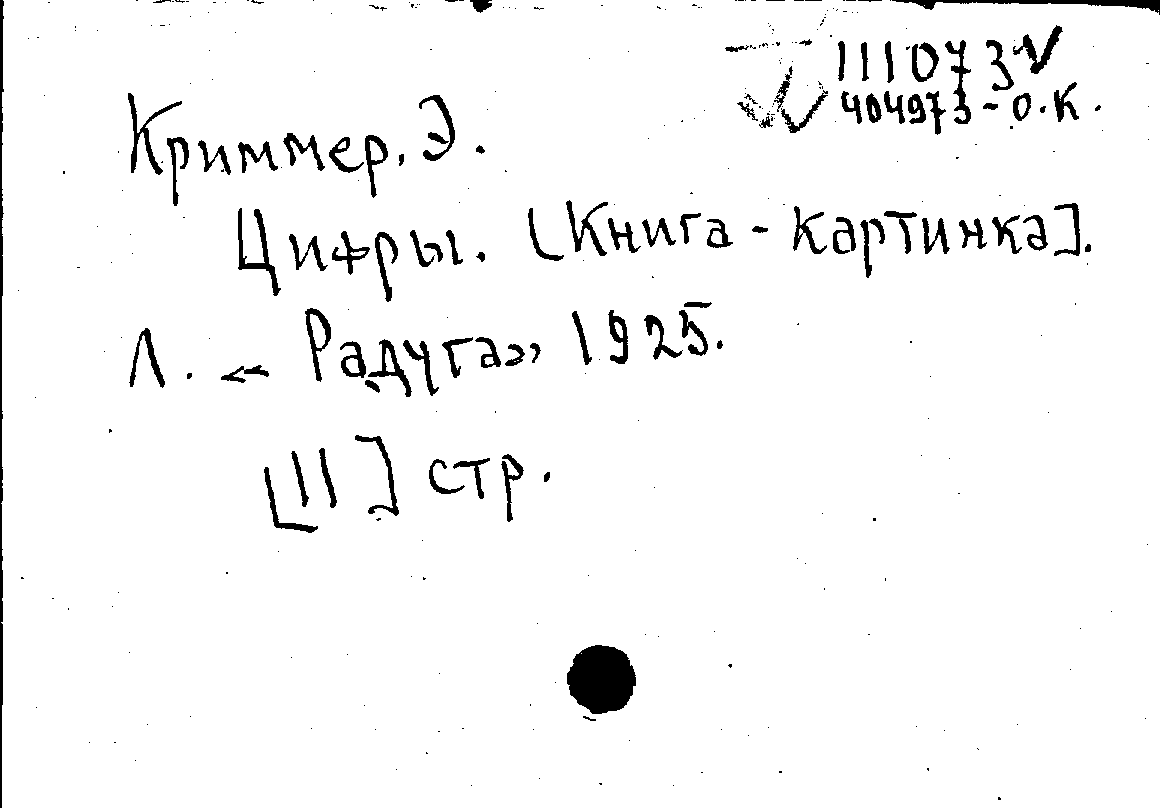 111073
404973-О.К.
Криммер. Э.
Цифры. [Книга-картинка].
Л. «Радуга» 1925.
[11] стр.